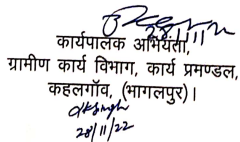 28.11.11
कार्यपालक अभियंता,
ग्रामीण कार्य विभाग, कार्य प्रमण्डल,
कहलगाँव, (भागलपुर)।
28/11/22